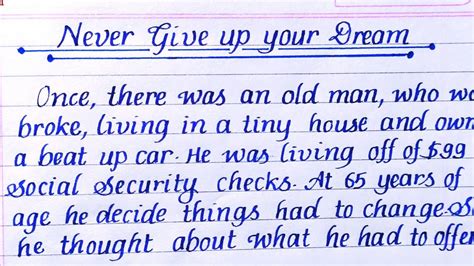 Never Give up your Dream
Once, there was an old man, who wo
broke, living in a tiny house and own
a beat up car. He was living off of $99
social security checks. At 65 years of
age he decide things had to change. S
he thought about what he had to offer